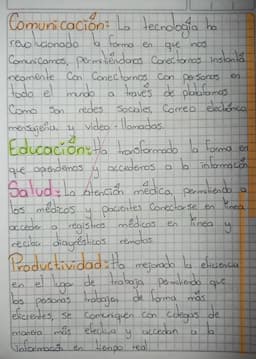 Comunicación: La tecnología ha
revolucionado la forma en que nos
Comunicamos, permitiendonos Conectarnos instantá
neamente Con Conectarnos Con personas en
todo el mundo a través de plataformas
Como son redes Sociales, Correo electrónico
mensajería y video-llamadas.
Educación: Ha transformado la forma en
que aprendemos y accedemos a la información
Salud: La atención médica, permitiendo a
los médicos y pacientes Conectarse en línea
acceder a registros médicos en línea y
recibir diagnósticos remotos
Productividad: Ha mejorado la eficiencia
en el lugar de trabajo permitiendo que
las personas trabajen de forma más
eficientes, se comuniquen con colegas de
manera más efectiva y accedan a la
información en tiempo real